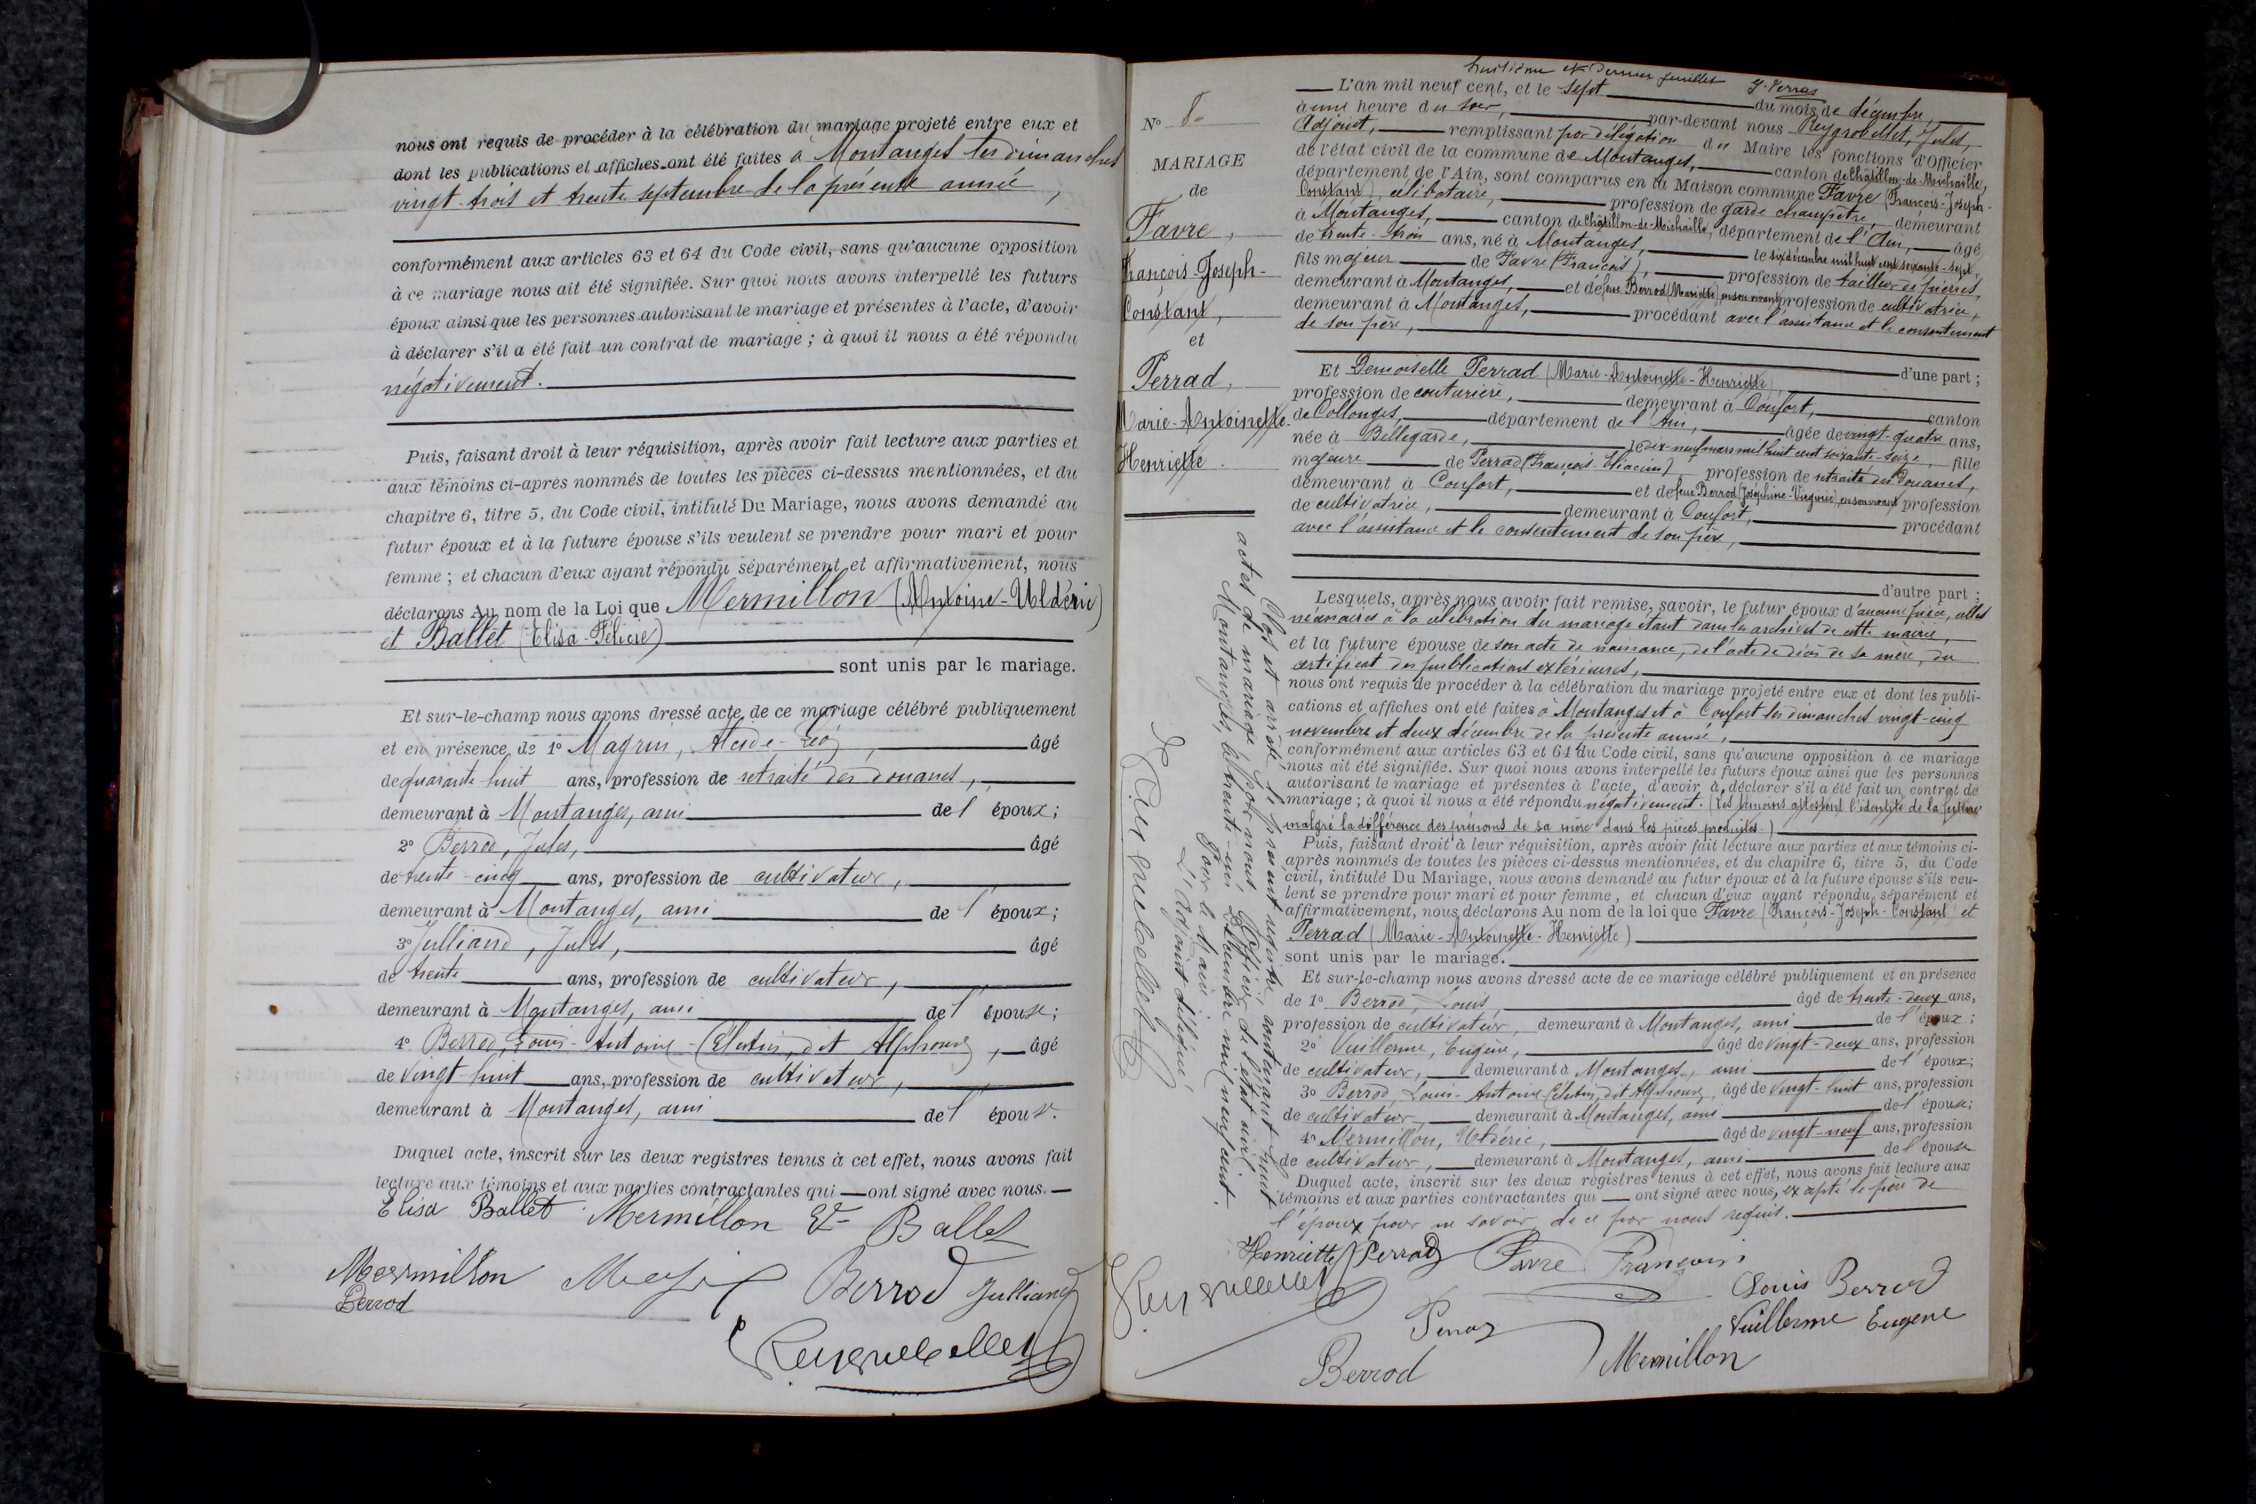 nous ont requis de procéder à la célébration du mariage projeté entre eux et
dont les publications et affiches ont été faites à Montanges les dimanches
vingt-trois et trente septembre de la présente année,
conformément aux articles 63 et 64 du Code civil, sans qu'aucune opposition
à ce mariage nous ait été signifiée. Sur quoi nous avons interpellé les futurs
époux ainsi que les personnes autorisant le mariage et présentes à l'acte, d'avoir
à déclarer s'il a été fait un contrat de mariage ; à quoi il nous a été répondu
négativement.
Puis, faisant droit à leur réquisition, après avoir fait lecture aux parties et
aux témoins ci-après nommés de toutes les pièces ci-dessus mentionnées, et du
chapitre 6, titre 5, du Code civil, intitulé Du Mariage, nous avons demandé au
futur époux et à la future épouse s'ils veulent se prendre pour mari et pour
femme ; et chacun d'eux ayant répondu séparément et affirmativement, nous
déclarons Au nom de la Loi que Mermillon (Antoine-Uldéric)
et Ballet (Elisa-Félicie)
sont unis par le mariage.
Et sur-le-champ nous avons dressé acte de ce mariage célébré publiquement
et en présence de 1° Magnin, Alcide-Léo, âgé
de quarante-huit ans, profession de retraité des douanes,
demeurant à Montanges, ami de l'époux;
2° Berrod, Jules, âgé
de trente-cinq ans, profession de cultivateur,
demeurant à Montanges, ami de l'époux;
3° Julliand, Jules, âgé
de trente ans, profession de cultivateur,
demeurant à Montanges, ami de l'épouse;
4° Berrod, Louis-Antoine-Célestin, dit Alphonse, âgé
de vingt-huit ans, profession de cultivateur,
demeurant à Montanges, ami de l'épouse.
Duquel acte, inscrit sur les deux registres tenus à cet effet, nous avons fait
lecture aux témoins et aux parties contractantes qui ont signé avec nous.
Elisa Ballet Mermillon Ballet
Mermillon Berrod Julliand
Berrod
Reygrobellet
huitième et dernier feuillet
N° 8
MARIAGE
de
Favre,
François-Joseph-
Constant,
et
Perrad,
Marie-Antoinette-
Henriette.
L'an mil neuf cent, et le sept du mois de décembre,
à une heure du soir, par-devant nous Reygrobellet, Jules,
Adjoint, remplissant par délégation du Maire les fonctions d'Officier
de l'état civil de la commune de Montanges, canton de Châtillon-de-Michaille,
département de l'Ain, sont comparus en la Maison commune Favre (François-Joseph-
Constant), célibataire, profession de garde champêtre, demeurant
à Montanges, canton de Châtillon-de-Michaille, département de l'Ain, âgé
de trente-trois ans, né à Montanges, le six décembre mil huit cent soixante-sept,
fils majeur de Favre (François), profession de tailleur de pierres,
demeurant à Montanges, et de feue Berrod (Mariette), en son vivant profession de cultivatrice,
demeurant à Montanges, procédant avec l'assistance et le consentement
de son père,
d'une part ;
Et Demoiselle Perrad (Marie-Antoinette-Henriette),
profession de couturière, demeurant à Confort, canton
de Collonges, département de l'Ain, âgée de vingt-quatre ans,
née à Bellegarde, le dix-neuf mars mil huit cent soixante-seize, fille
majeure de Perrad (François-Hiacim), profession de retraité des Douanes,
demeurant à Confort, et de feue Berrod (Joséphine-Virginie), en son vivant profession
de cultivatrice, demeurant à Confort, procédant
avec l'assistance et le consentement de son père,
d'autre part ;
Lesquels, après nous avoir fait remise, savoir, le futur époux d'aucune pièce, celles
nécessaires à la célébration du mariage étant dans les archives de cette mairie,
et la future épouse de son acte de naissance, de l'acte de décès de sa mère, du
certificat des publications extérieures,
nous ont requis de procéder à la célébration du mariage projeté entre eux et dont les publi-
cations et affiches ont été faites à Montanges et à Confort les dimanches vingt-cinq
novembre et deux décembre de la présente année,
conformément aux articles 63 et 64 du Code civil, sans qu'aucune opposition à ce mariage
nous ait été signifiée. Sur quoi nous avons interpellé les futurs époux ainsi que les personnes
autorisant le mariage et présentes à l'acte, d'avoir à déclarer s'il a été fait un contrat de
mariage ; à quoi il nous a été répondu négativement. (Les témoins attestent l'identité de la future
malgré la différence des prénoms de sa mère dans les pièces produites.)
Puis, faisant droit à leur réquisition, après avoir fait lecture aux parties et aux témoins ci-
après nommés de toutes les pièces ci-dessus mentionnées, et du chapitre 6, titre 5, du Code
civil, intitulé Du Mariage, nous avons demandé au futur époux et à la future épouse s'ils veu-
lent se prendre pour mari et pour femme, et chacun d'eux ayant répondu séparément et
affirmativement, nous déclarons Au nom de la loi que Favre (François-Joseph-Constant) et
Perrad (Marie-Antoinette-Henriette)
sont unis par le mariage.
Et sur-le-champ nous avons dressé acte de ce mariage célébré publiquement et en présence
de 1° Berrod, Louis, âgé de trente-deux ans,
profession de cultivateur, demeurant à Montanges, ami de l'époux ;
2° Vuillerme, Eugène, âgé de vingt-deux ans, profession
de cultivateur, demeurant à Montanges, ami de l'époux;
3° Berrod, Louis-Antoine-Célestin, dit Alphonse, âgé de vingt-huit ans, profession
de cultivateur, demeurant à Montanges, ami de l'épouse;
4° Mermillon, Uldéric, âgé de vingt-neuf ans, profession
de cultivateur, demeurant à Montanges, ami de l'épouse
Duquel acte, inscrit sur les deux registres tenus à cet effet, nous avons fait lecture aux
témoins et aux parties contractantes qui ont signé avec nous, excepté le père de
l'époux pour ne savoir, de ce par nous requis.
Henriette Perrad Favre François
Reygrobellet Louis Berrod
Vuillerme Eugene
Berrod Mermillon
Clos et arrêté le présent registre, contenant huit
actes de mariage, par nous Officier de l'état civil.
Montanges, le trente-un Décembre mil neuf cent.
Pour le Maire :
L'Adjoint délégué,
Reygrobellet